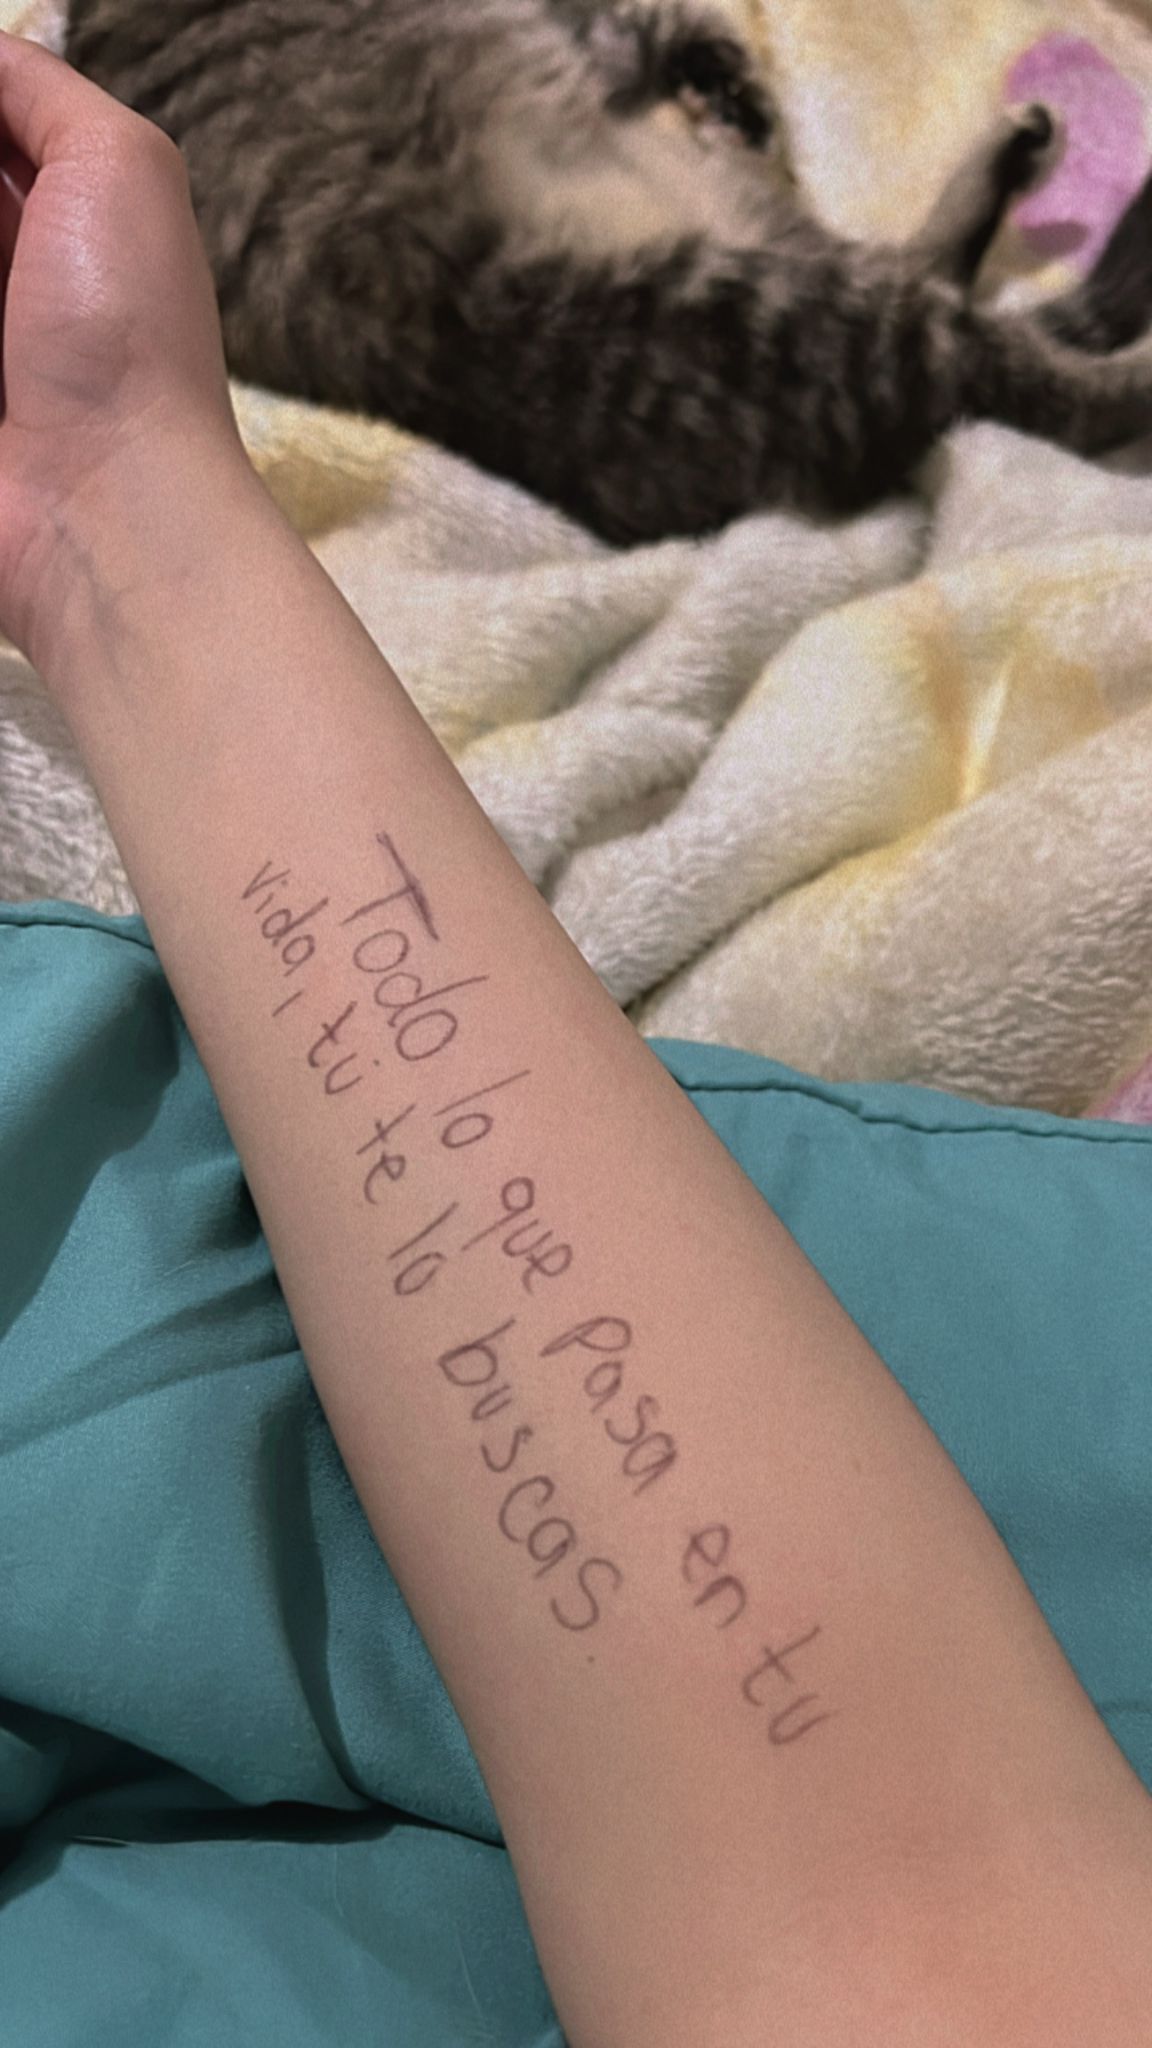 Todo lo que pasa en tu
vida, tú te lo buscas.